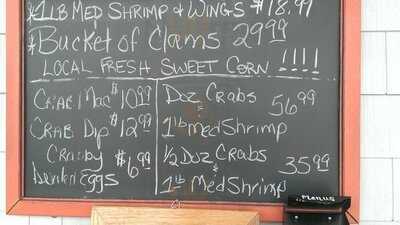 *1LB MED SHRIMP & WINGS $18.99
*BUCKET OF CLAMS 29.99
LOCAL FRESH SWEET CORN !!!!
CRAB Mac $10.99
CRAB Dip $12.99
CRabby $6.99
Deviled Eggs
Doz CRabs
&
1 lb med Shrimp
56.99
1/2 Doz CRabs
&
1 lb Med Shrimp
35.99
MENUS